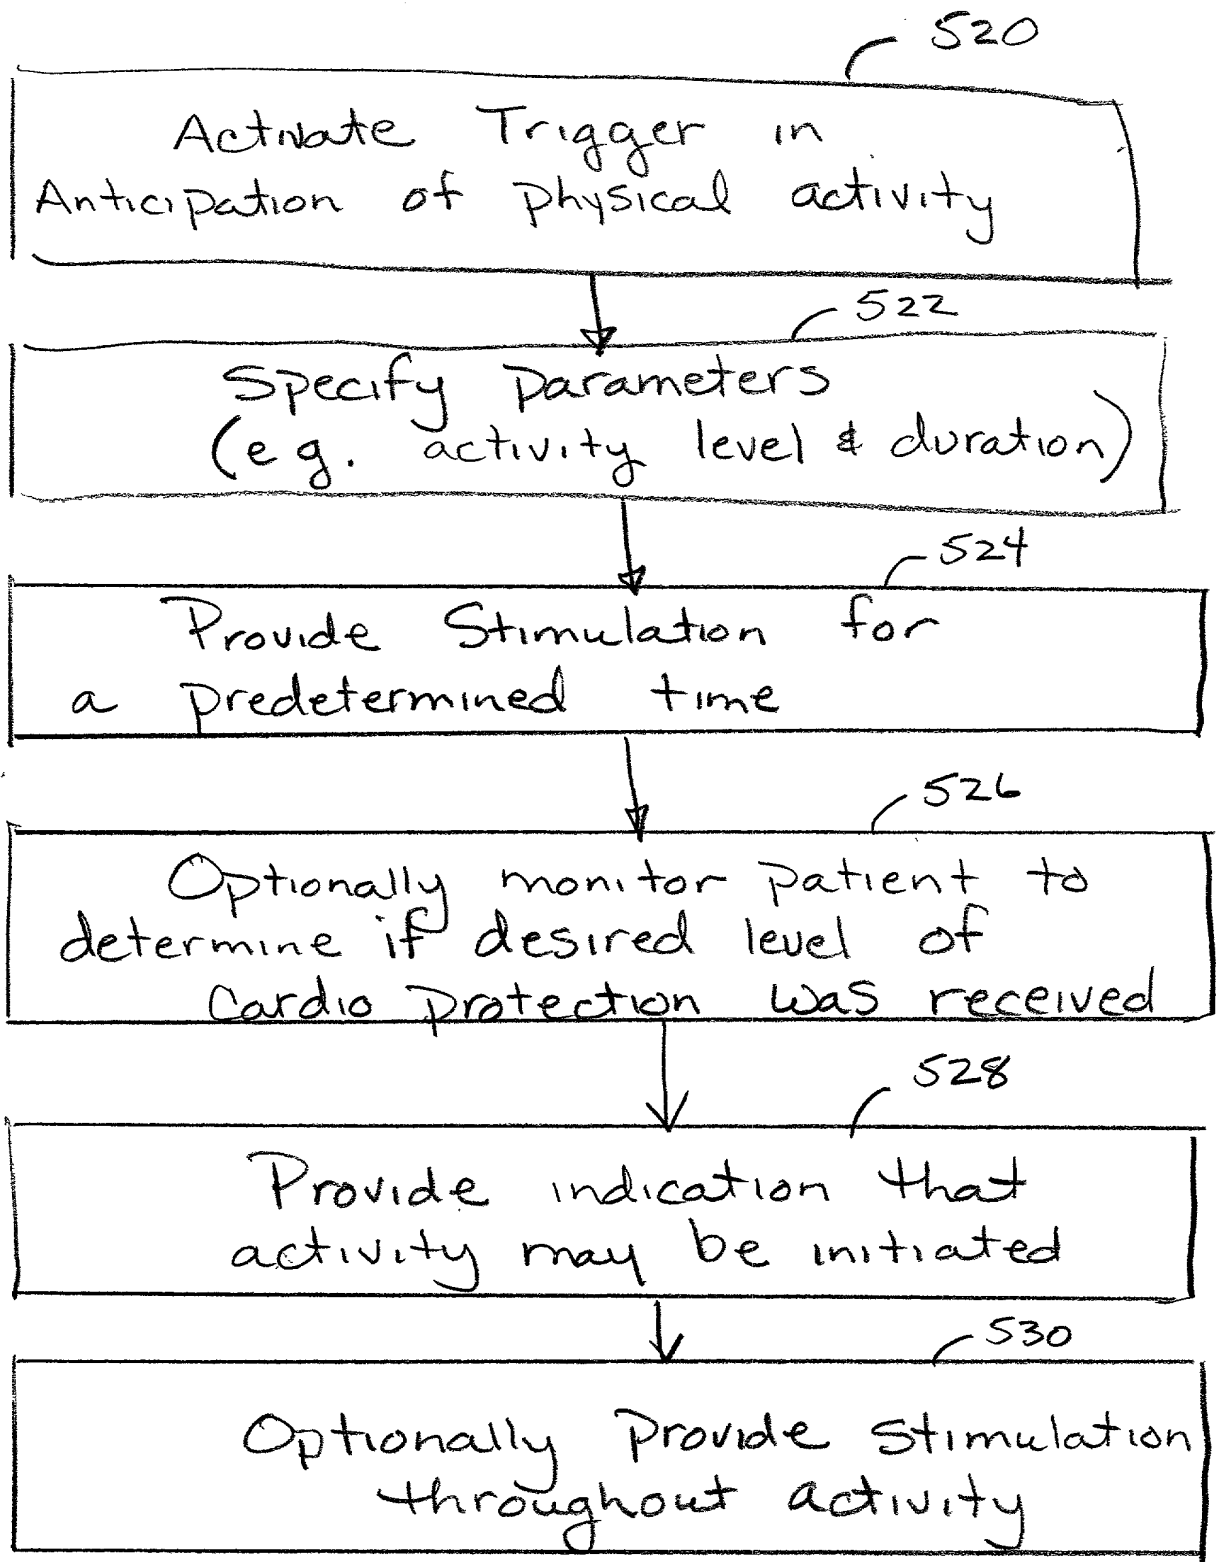 520
Activate Trigger in
Anticipation of physical activity
522
Specify parameters
(e.g. activity level & duration)
524
Provide Stimulation for
a predetermined time
526
Optionally monitor patient to
determine if desired level of
Cardio protection was received
528
Provide indication that
activity may be initiated
530
Optionally provide stimulation
throughout activity